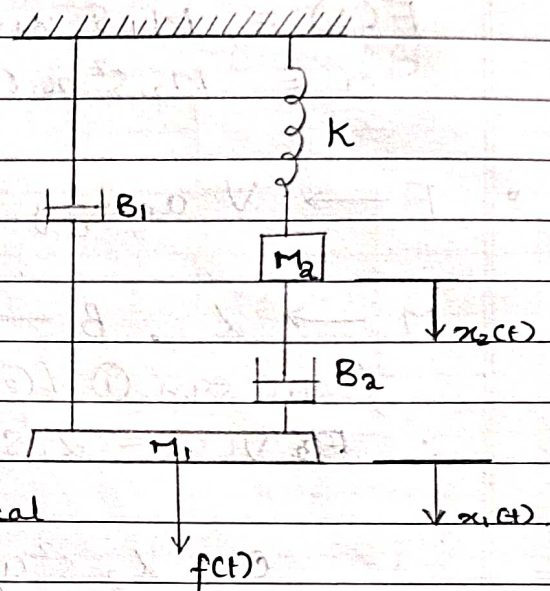 K
B1
M2
x2(t)
B2
M1
cal
x1(t)
f(t)